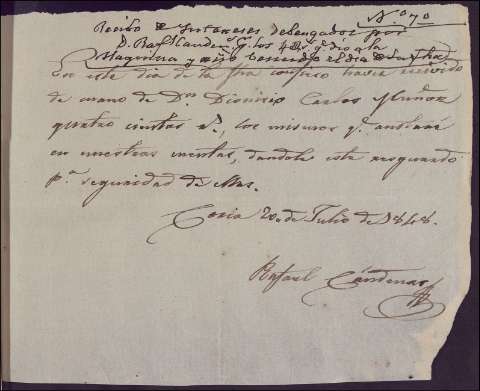 N.º 7.º
Recibo de Intereses debengados por
D. Raf.l Carden.s q. los 4 q. dio a la
Maquina y año bencido el dia de la fha
En este dia de la fha confieso haver recivido
de mano de Dn. Dionisio Carlos Muñoz
quatro cientos r.s, los mismos q.e anotaré
en nuestras cuentas, dandole este resguardo
p.a seguridad de
Coria 20 de Julio de 1848.
Rafael Cárdenas